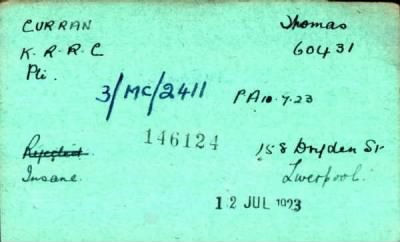 CURRAN Thomas
K. R. R. C 60431
Pte.
3/MC/2411 PA 10.7.23
146124
Rejected. 158 Dryden St
Insane. Liverpool.
12 JUL 1923